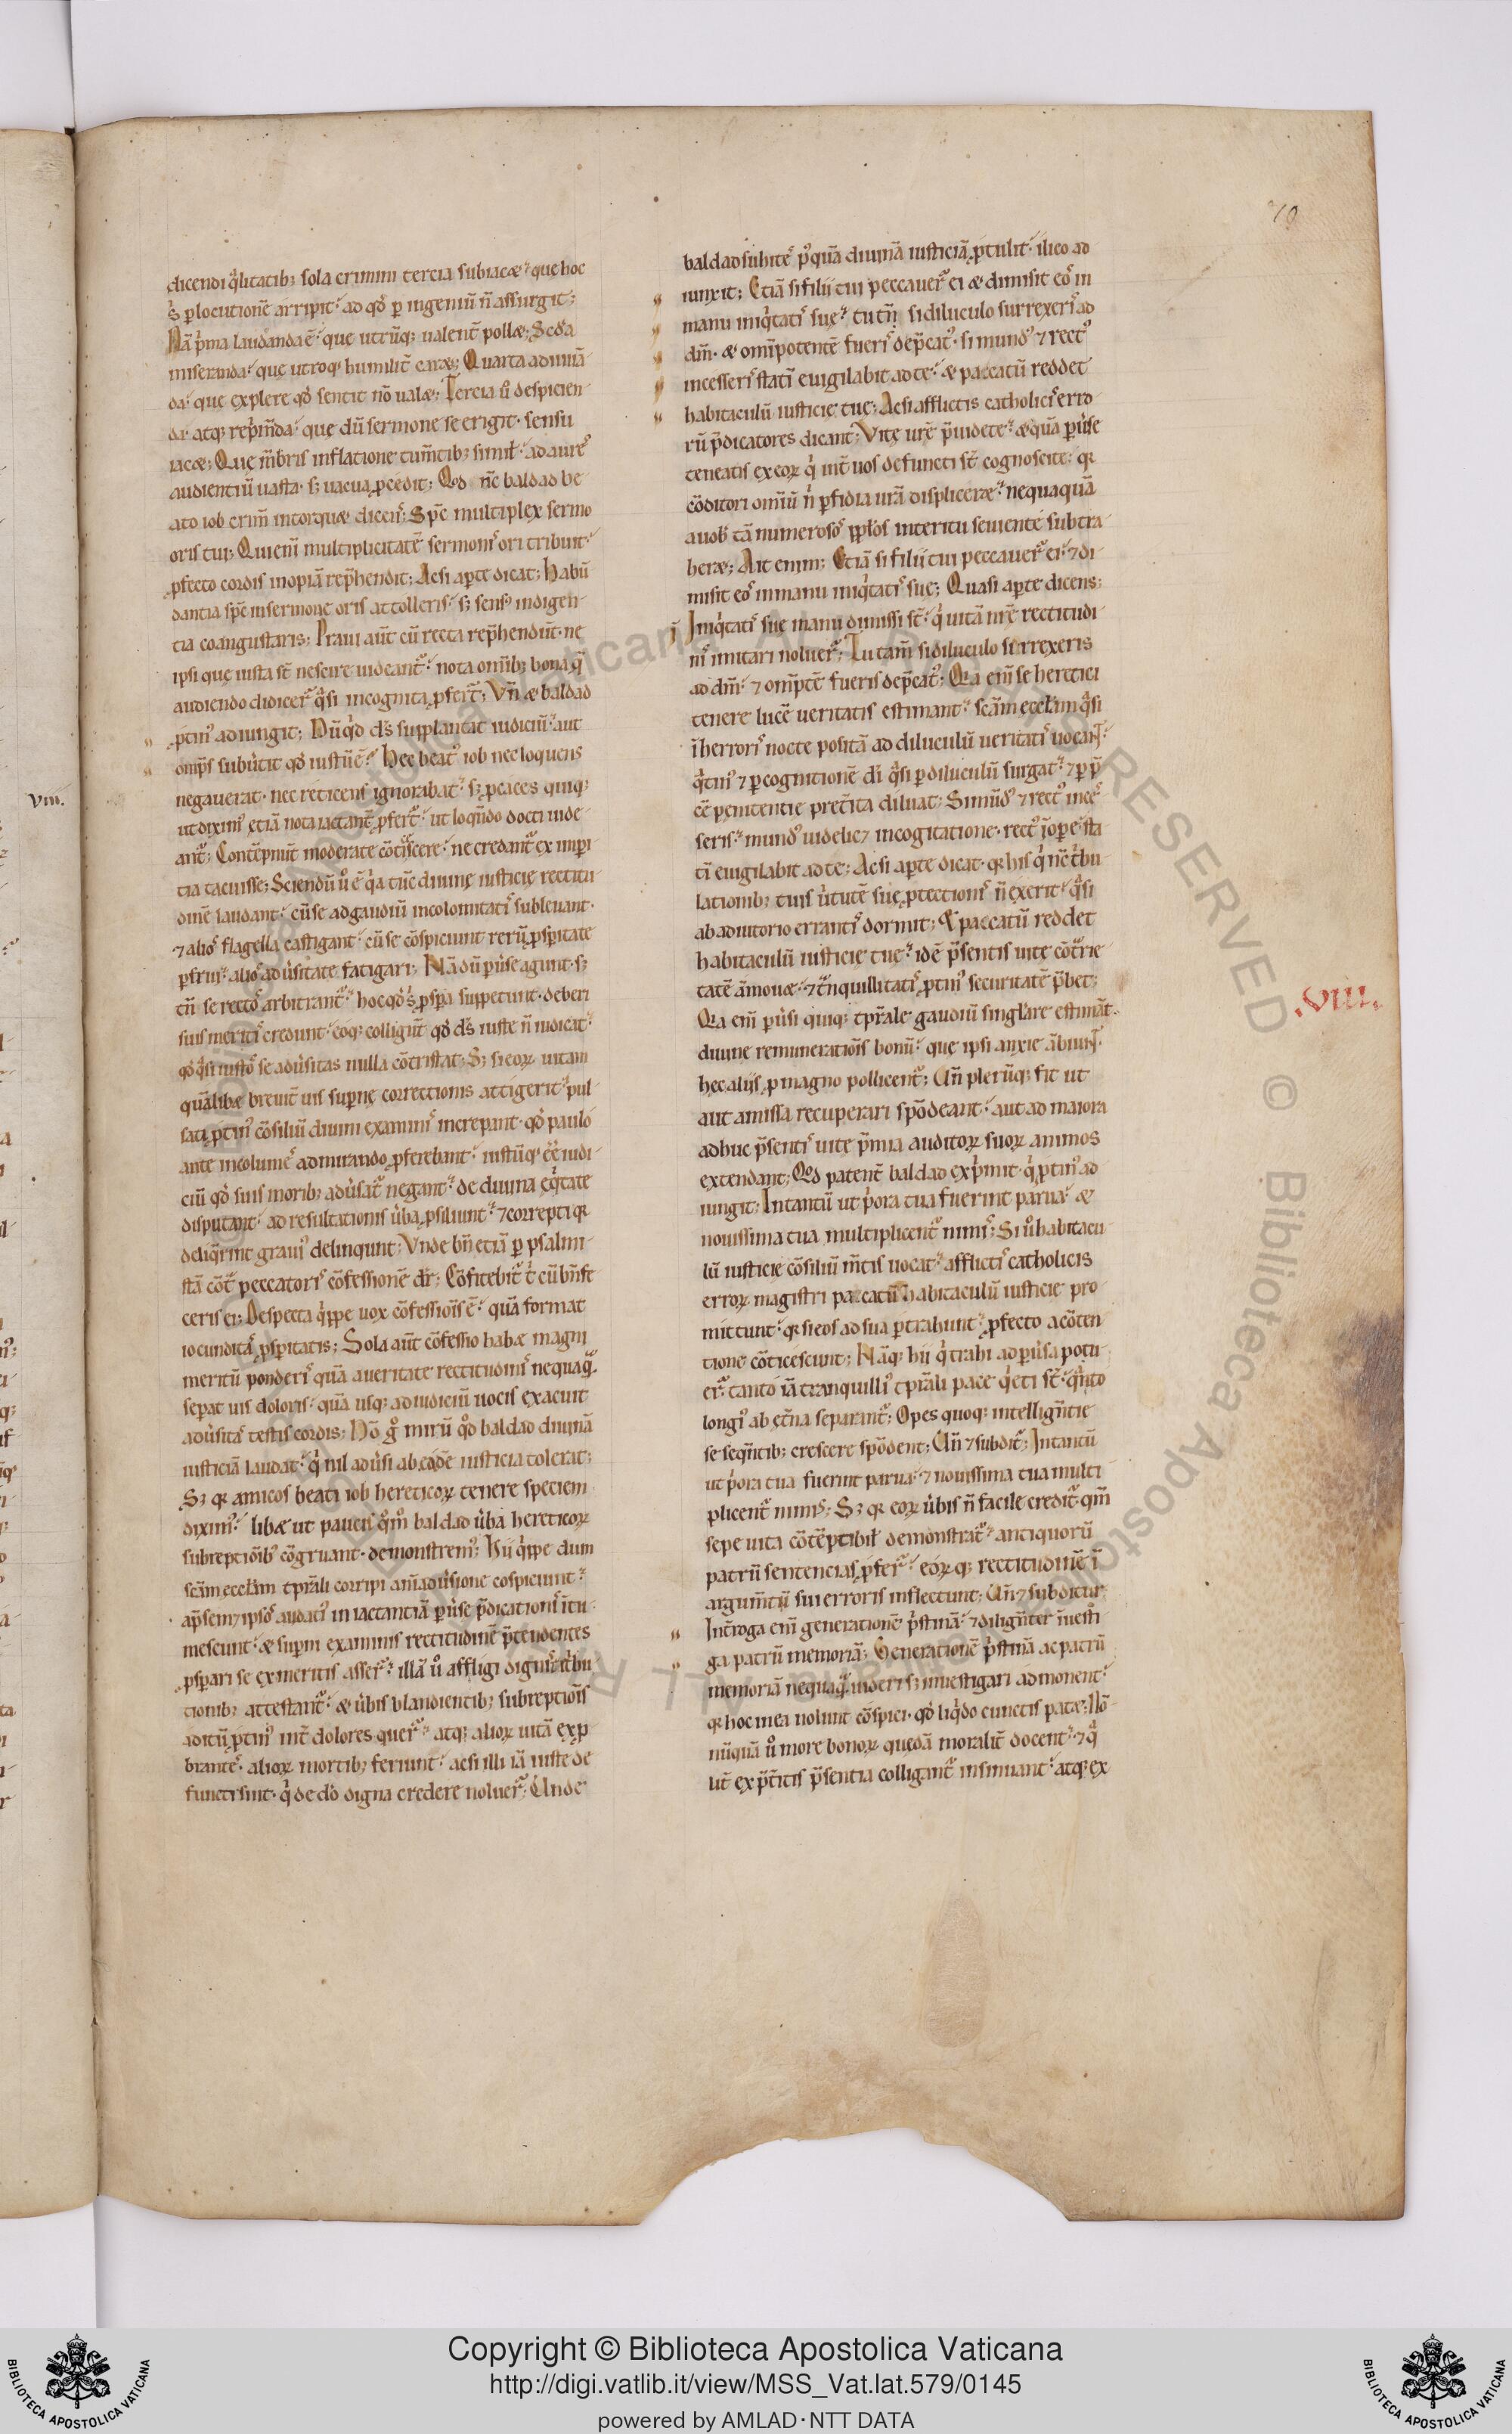 70
dicendi q̓litatib; sola crimini tercia subiacæ.᷑ que hoc
ſ; p locutionē arripit.᷑ ad qd̓ p ingeniū n̄ assurgit;
Nā p̓ma laudanda ē.᷑ que utrūq; ualent̄ pollæ; Scd̓a
miseranda.᷑ quę utroq; humilit̄ caræ; Quarta adiuuā
da.᷑ que explere qd̓ sentit nō ualæ; Tercia u̓o despicien
da. atq; rep̓m̄da.᷑ quę dū sermone se erigit. sensu
iacæ; Quę m̄bris inflatione tum̄tib; simil̓.᷑ ad aure᷒
audientiū uasta. s; uacua ꝓcedit; Qd̓ nc̄ baldad be
ato iob crim̄ intorquæ dicen᷒; Spc̄ multiplex sermo
oris tui; Qui enī multiplicitatē sermoni᷒ ori tribuit.᷑
ꝓfecto cordis inopiā rep̄hendit; Ac si aperte dicat; Habū
dantia spc̄ in sermone oris attolleris.᷑ s; sens᷒ indigen
tia coangustaris; Praui aūt cū recta rep̄hendūt. ne
ipsi que iusta st̄ nescire uideant᷑.᷑ nota omib; bona q̄
audiendo didicer᷑ q̓si incognita ꝓfert̄; Vn̄ æ baldad
ꝓtin᷒ adiungit; Nūq̓d d̄s supplantat iudiciū.᷑ aut
omp̄s subu̓tit qd̓ iustū ē.᷑ Hec beat᷒ iob nec loquens
negauerat. nec reticens ignorabat.᷑ s; ꝓcaces quiq;
ut dixim᷒ etiā nota iactant̄ ꝓfert̄.᷑ ut loqn̄do docti uide
ant᷑; Contēpnūt moderate cōtic̓scere.᷑ ne credant᷑ ex impi
tia tacuisse; Sciendū u̓o ē q̓a tūc diuinę iusticię rectitu
dinē laudant.᷑ cū se ad gaudiū incolomitati᷒ subleuant.
⁊ alio᷒ flagella castigant.᷑ cū se cōspiciunt rerū ꝓspitate
pfrui.᷑ alio᷒ adu̓sitate fatigari; Nā dū pu̓se agunt. s;
tn̄ se recto᷒ arbitrant᷑.᷑ hoc qd̓ s; ꝓspa suppetunt. deberi
suis meriti᷒ credunt.᷑ eoq; colligūt qd̓ d̄s iuste n̄ iudicat.᷑
qd̓ q̓si iusto᷒ se adu̓sitas nulla cōtristat; S; si eoꝝ uitam
quālibæ breuit̄ uis supnę correctionis attigerit.᷑ pul
sati ꝓtin᷒ cōsiliū diuini examini᷒ increpant. qd̓ paulo
ante incolume᷒ admirando ꝓferebant.᷑ iustūq; ee᷒ iudi
ciū qd̓ suis morib; adu̓sat᷑ negant.᷑ de diuina eq̓tate
disputant.᷑ ad resultationis u̓ba ꝓsiliunt.᷑ ⁊ correpti qꝛ
deliq̓rint graui᷒ delinqunt; Vnde bn̄ etiā p psalmi
stā cōt̄ peccatori᷒ cōfessionē dr̄; Cōfitebit᷑ t̓ cū bn̄fe
ceris ei; Despecta q̓ppe uox cōfessioīs ē.᷑ quā format
iocundita᷒ ꝓspitatis; Sola aūt cōfessio habæ magni
meritū ponderi᷒ quā a ueritate rectitudini᷒ nequaq̓.
sepat uis doloris.᷑ quā usq; ad iudiciū uocis exacuit
adu̓sita᷒ testis cordis; Nō g̊ mirū qd̓ baldad diuinā
iusticiā laudat.᷑ q̓ nil adu̓si ab eadē iusticia tolerat;
S; qꝛ amicos beati iob hereticoꝝ tenere speciem
dixim᷒.᷑ libæ ut paucis qm̊ baldad u̓ba hereticoꝝ
subreptiōib᷒ cōgruant. demonstrem᷒; Hii q̓ppe dum
scām eccl̓am tp̄rali corripi am̄adu̓sione cospiciunt.᷑
ap̄sem ⁊ ipso᷒ audati᷒ in iactantiā pu̓se p̄dicationi᷒ ītu
mescunt.᷑ æ supni examinis rectitudinē p̄tendentes
ꝓspari se ex meritis asser᷑.᷑ illā u̓o affligi digni᷒ t̓bu
tionib; attestant᷑.᷑ æ u̓bis blandientib; subreptioīs
aditū ꝓtin᷒ int̄ dolores quer᷑.᷑ atq; alioꝝ uitā exp
brante᷒. alioꝝ mortib; feriunt.᷑ ac si illi iā iuste de
functi sint. q̓ de d̄o digna credere noluer᷑; Vnde
baldad subite᷒ p᷒quā diuinā iusticiā ꝓtulit. ilico ad
iunxit; Etiā si filii tui peccauer᷑ ei æ dimisit eo᷒ in
manu iniq̓tati᷒ suę.᷑ tu tn̄ si diluculo surrexeri᷒ ad
dm̄. æ omīpotentē fueri᷒ dep̄cat᷒. si mund᷒ ⁊ rect᷒
incesseri᷒ statī euigilabit ad te.᷑ æ paccatū reddet
habitaculū iusticie tue; Ac si afflictis catholici᷒ erro
rū p̄dicatores dicant; Vitę urę̄ p̄uidete.᷑ æ quā pu̓se
teneatis ex eoꝝ q̓ int̄ uos defuncti st̄ cognoscite.᷑ qꝛ
cōditori omīū n̓ pfidia ur̄a displiceræ.᷑ nequaquā
a uob᷒ tā numeroso᷒ ppl̓os interitu seuiente subtra
heræ; Ait enim; Etiā si filii tui peccauer᷑ ei.᷑ ⁊ di
misit eo᷒ in manu iniq̓tati᷒ suę; Quasi aperte dicens;
Iniq̓tati᷒ suę manu dimissi st̄.᷑ q̓ uitā nr̄ę rectitudi
ni᷒ imitari noluer᷑; Tu tam̄ si diluculo surrexeris
ad dm̄.᷑ ⁊ omp̄tē fueris dep̄cat᷒; Qa enī se heretici
tenere lucē ueritatis estimant.᷑ scām eccl̓am q̓si
ī herrori᷒ nocte positā ad diluculū ueritati᷒ uocant.᷑
q̓tin᷒ ⁊ p cognitionē dī q̓si p diluculū surgat.᷑ ⁊ p p̄
cē penitentie pret̄ita diluat; Si mūd᷒ ⁊ rect᷒ ince᷒
seris.᷑ mund᷒ uidelic; in cogitatione. rect᷒ ī ope.᷑ sta
tī euigilabit ad te; Ac si aperte dicat. qꝛ his q̓ nc̄ t̓bu
lationib; tuis u̓tutē suę ꝓtectioni᷒ n̄ exerit.᷑ q̓si
ab adiutorio erranti᷒ dormit; Et paccatū reddet
habitaculū iusticię tuę.᷑ idē p̄sentis uite cōt̓rie
tatē āmouæ.᷑ ⁊ t̓nquillitati᷒ ꝓtin᷒ securitatē p̄bet;
Qa enī pu̓si quiq; tp̄rale gaudiū singl̓are estimāt.
diuine remuneratiōis bonū.᷑ que ipsi anxie ābiunt.
hec aliis ꝓ magno pollicent᷑; Vn̄ plerūq; fit ut
aut amissa recuperari spōdeant.᷑ aut ad maiora
adhuc p̄senti᷒ uite p̄mia auditoꝝ suoꝝ animos
extendant; Qd̓ patent̄ baldad exp̓mit. q̓ ꝓtin᷒ ad
iungit; Intantū ut p̓ora tua fuerint parua.᷑ æ
nouissima tua multiplicent᷑ nimi᷒; Si u̓o habitacu
lū iusticie cōsiliū m̄tis uocat.᷑ afflicti᷒ catholicis
erroꝝ magistri paccatū habitaculū iusticie pro
mittunt.᷑ qꝛ si eos ad sua ptrahunt.᷑ ꝓfecto a cōten
tione cōticescunt; Nāq; hii q̓ trahi ad pu̓sa potu
er᷑ tanto iā tranquilli᷒ tp̄rali pace q̓eti st̄.᷑ q̓nto
longi᷒ ab et̄na separant᷑; Opes quoq; intellign̄tie
se seqn̄tib; crescere spōdent; Vn̄ ⁊ subdit᷑; Intantū
ut p̓ora tua fuerint parua.᷑ ⁊ nouissima tua multi
plicent᷑ nimi᷒; S; qꝛ eoꝝ u̓bis n̄ facile credit᷑ qm̄
sepe uita cōtēptibil̓ demonstrat᷑.᷑ antiquorū
patrū sentencias ꝓfer᷑.᷑ eoꝝq; rectitudinē ī
argum̄tū sui erroris inflectunt; Vn̄ ⁊ subditur
Int̄roga enī generationē p̓stinā.᷑ ⁊ dilign̄ter īuesti
ga patrū memoriā; Generationē p̓stinā ac patrū
memoriā nequaq̓ uideri s; inuestigari admonent.᷑
qꝛ hoc in ea nolunt cōspici. qd̓ liq̓do cunctis patæ; Nō
nūquā u̓o more bonoꝝ quedā moralit̄ docent.᷑ ⁊ q̓
lit̄ ex p̄t̄itis p̄sentia colligant᷑ insinuant.᷑ atq; ex
.VIII.
VIII.
Copyright © Biblioteca Apostolica Vaticana
http://digi.vatlib.it/view/MSS_Vat.lat.579/0145
powered by AMLAD·NTT DATA
BIBLIOTECA APOSTOLICA VATICANA
BIBLIOTECA APOSTOLICA VATICANA